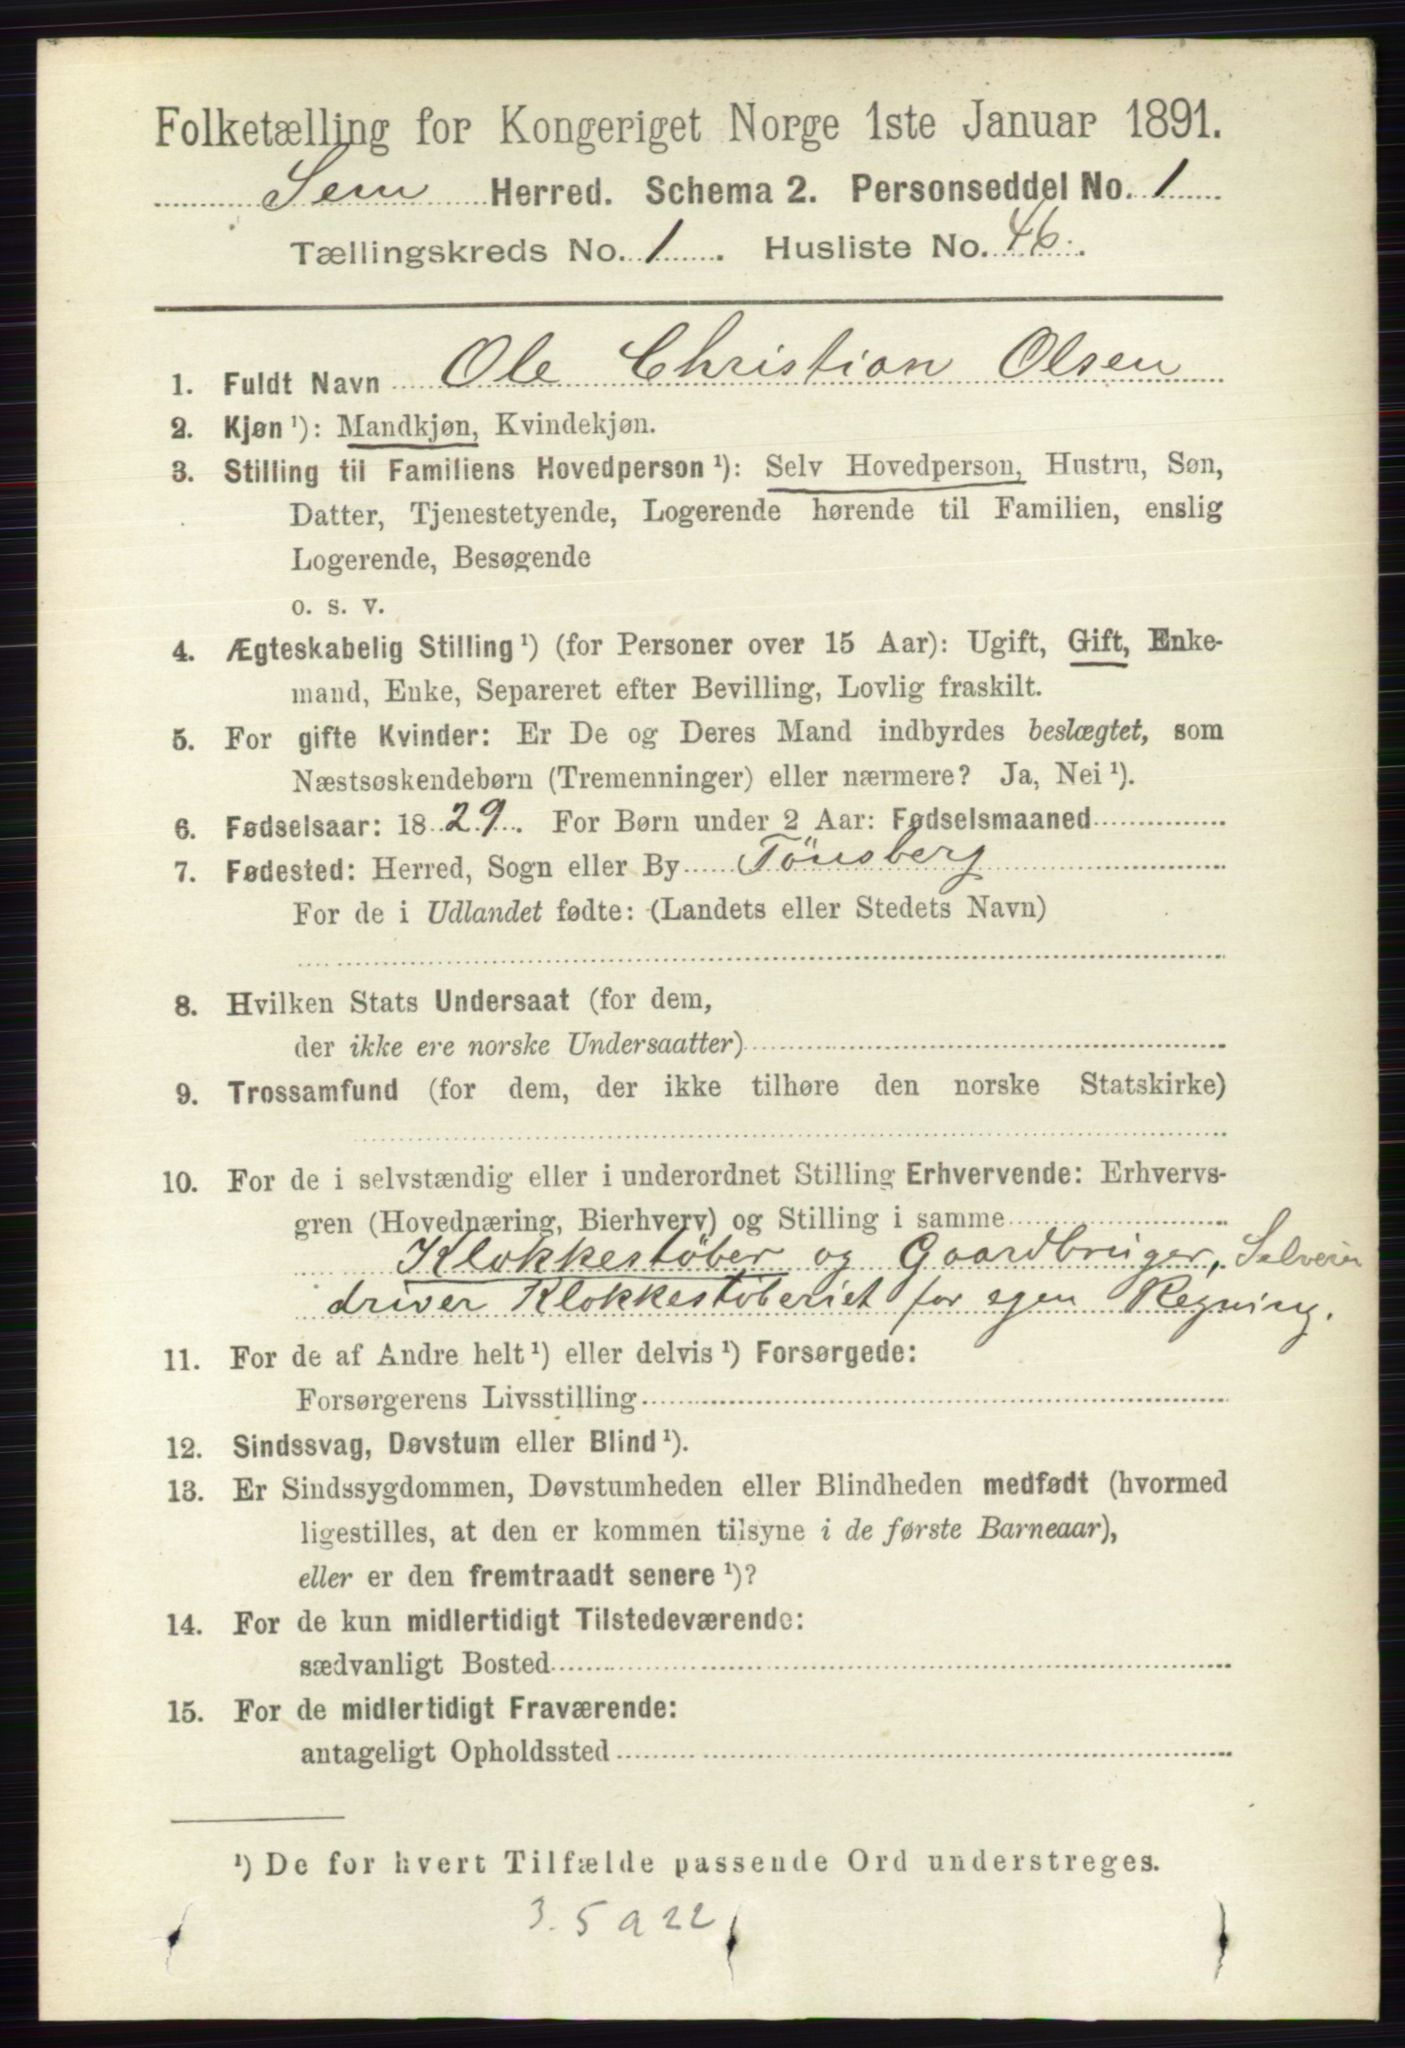 Folketælling for Kongeriget Norge 1ste Januar 1891.
Sem Herred. Schema 2. Personseddel No. 1
Tællingskreds No. 1. Husliste No. 46.
1. Fuldt Navn Ole Christian Olsen
2. Kjøn ¹): Mandkjøn, Kvindekjøn.
3. Stilling til Familiens Hovedperson ¹): Selv Hovedperson, Hustru, Søn,
Datter, Tjenestetyende, Logerende hørende til Familien, enslig
Logerende, Besøgende
o. s. v.
4. Ægteskabelig Stilling ¹) (for Personer over 15 Aar): Ugift, Gift, Enke-
mand, Enke, Separeret efter Bevilling, Lovlig fraskilt.
5. For gifte Kvinder: Er De og Deres Mand indbyrdes beslægtet, som
Næstsøskendebørn (Tremenninger) eller nærmere? Ja, Nei ¹).
6. Fødselsaar: 1829. For Børn under 2 Aar: Fødselsmaaned
7. Fødested: Herred, Sogn eller By Tönsberg
For de i Udlandet fødte: (Landets eller Stedets Navn)
8. Hvilken Stats Undersaat (for dem,
der ikke ere norske Undersaatter)
9. Trossamfund (for dem, der ikke tilhøre den norske Statskirke)
10. For de i selvstændig eller i underordnet Stilling Erhvervende: Erhvervs-
gren (Hovednæring, Bierhverv) og Stilling i samme
Klokkestöber og Gaardbruger, Selveier
driver Klokkestöberiet for egen Regning.
11. For de af Andre helt ¹) eller delvis ¹) Forsørgede:
Forsørgerens Livsstilling
12. Sindssvag, Døvstum eller Blind ¹).
13. Er Sindssygdommen, Døvstumheden eller Blindheden medfødt (hvormed
ligestilles, at den er kommen tilsyne i de første Barneaar),
eller er den fremtraadt senere ¹)?
14. For de kun midlertidigt Tilstedeværende:
sædvanligt Bosted
15. For de midlertidigt Fraværende:
antageligt Opholdssted
¹) De for hvert Tilfælde passende Ord understreges.
3. 5 a 22